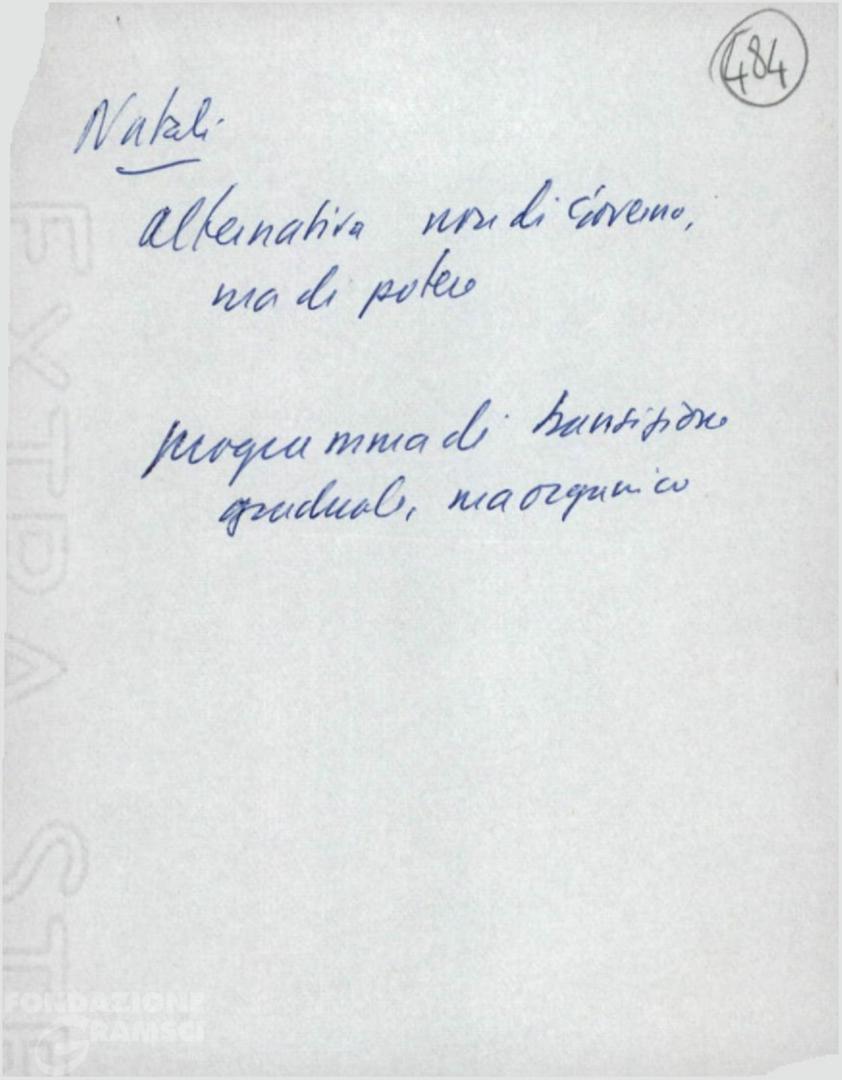 484
Natali
alternativa non di Governo,
ma di potere
programma di transizione
graduale, ma organico
EXTRA ST
FONDAZIONE
GRAMSCI